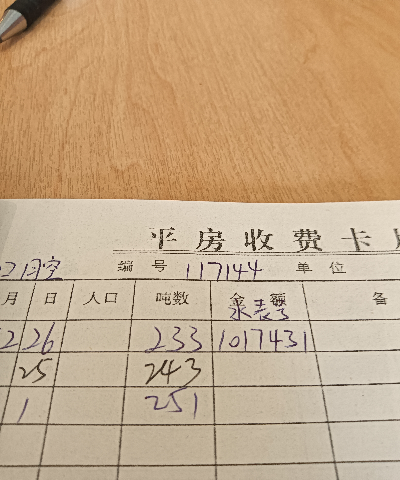 平房收费卡
编号 117144 单位
月 日 人口 吨数 金额 备
水表号
2 26 233 1017431
25 243
1 251